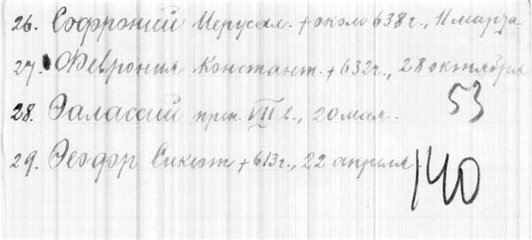 26. Софроний Иерусал. † около 638 г., 11 марта
27. Феврония Констант. † 632 г., 28 октября
28. Фалассий преп. VII в., 20 мая.
53
29. Феодор Сикеот † 613 г., 22 апреля
140